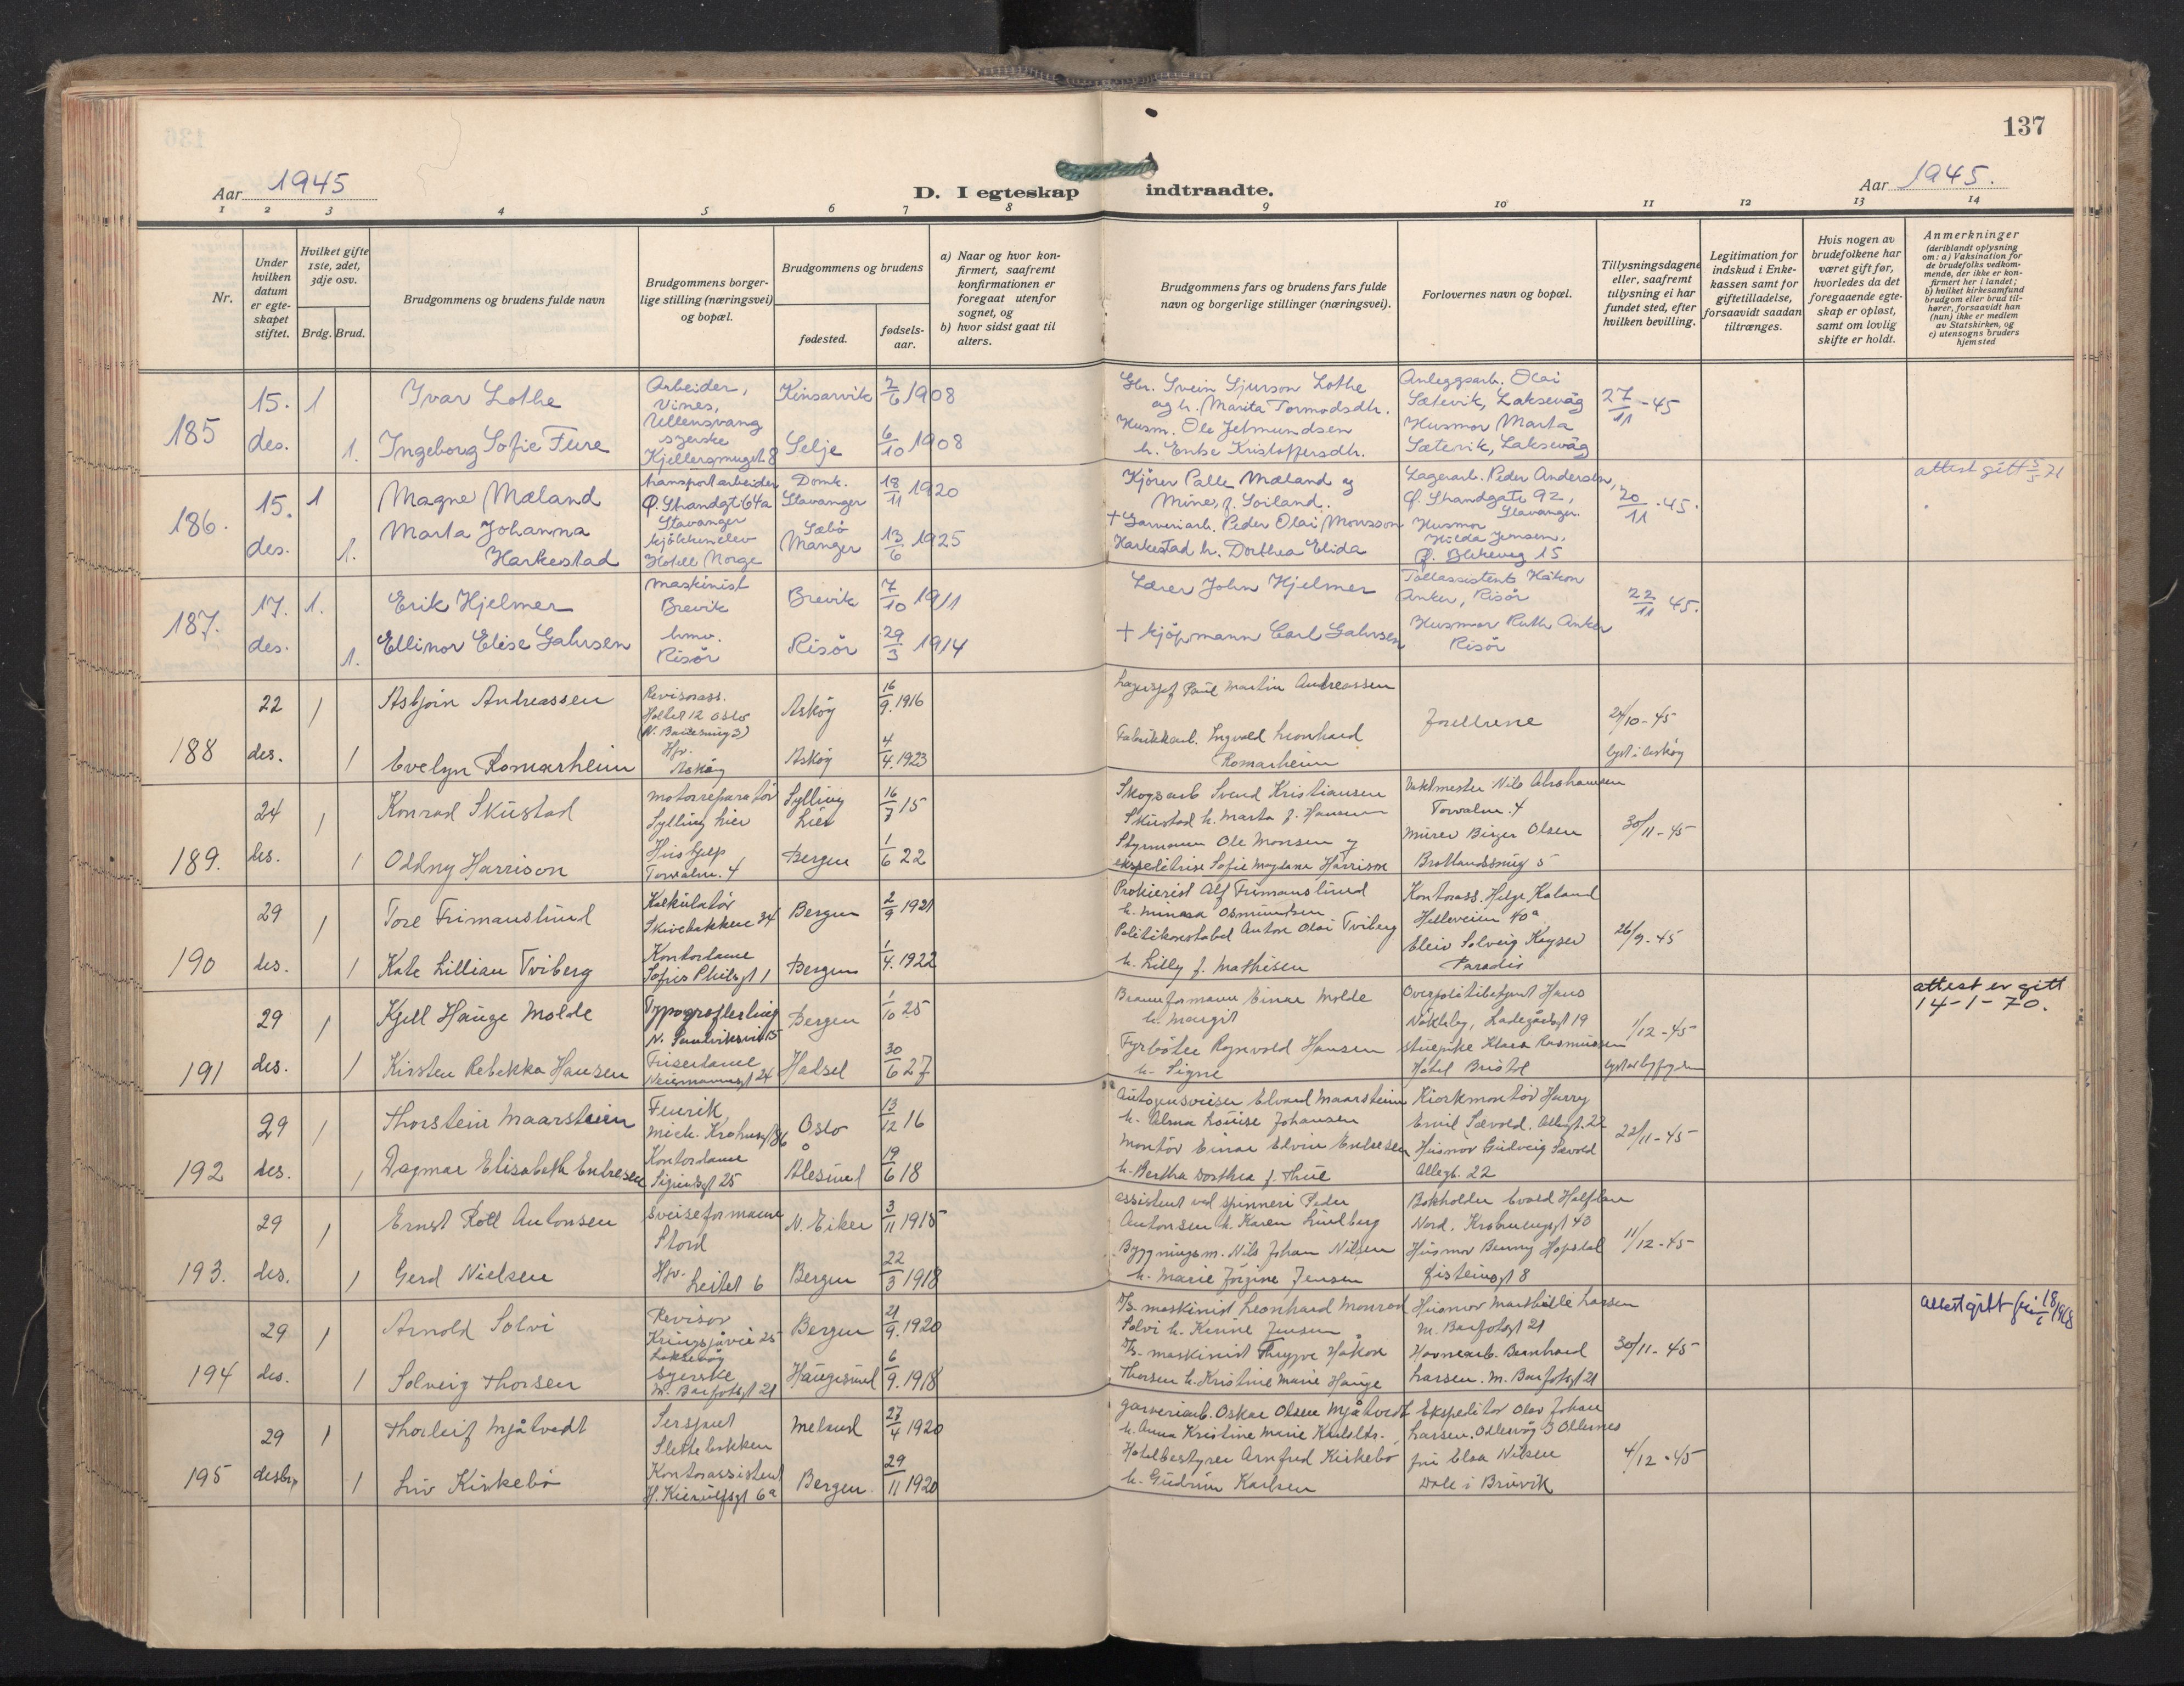 137
Aar 1945
D. I egteskap indtraadte.
Aar 1945.
1 2 3 4 5 6 7 8 9 10 11 12 13 14
Nr.
Under hvilken datum er egteskapet stiftet.
Hvilket gifte 1ste, 2det, 3dje osv.
Brdg. Brud.
Brudgommens og brudens fulde navn
Brudgommens borgerlige stilling (næringsvei) og bopæl.
Brudgommens og brudens
fødested.
fødselsaar.
a) Naar og hvor konfirmert, saafremt konfirmationen er foregaat utenfor sognet, og
b) hvor sidst gaat til alters.
Brudgommens fars og brudens fars fulde navn og borgerlige stillinger (næringsvei).
Forlovernes navn og bopæl.
Tillysningsdagene eller, saafremt tillysning ei har fundet sted, efter hvilken bevilling.
Legitimation for indskud i Enkekassen samt for giftetilladelse, forsaavidt saadan tiltrænges.
Hvis nogen av brudefolkene har været gift før, hvorledes da det foregaaende egteskap er opløst, samt om lovlig skifte er holdt.
Anmerkninger
(deriblandt oplysning om: a) Vaksination for de brudefolks vedkommende, der ikke er konfirmert her i landet; b) hvilket kirkesamfund brudgom eller brud tilhører, forsaavidt han (hun) ikke er medlem av Statskirken, og c) utensogns bruders hjemsted
185
15. des.
1
1.
Ivar Lothe
Ingeborg Sofie Fure
Arbeider,
Vines,
Ullensvang
syerske
Kjellersmuget 8
Kinsarvik 2/6 1908
Selje 6/10 1908
Gbr. Svein Sjurson Lothe
og h. Marita Tormodsdtr.
Husm. Ole Jetmundsen
h. Enke Kristoffersdtr.
Anleggsarb. Olai
Sætevik, Laksevåg
Husmor Marta
Sætevik, Laksevåg
27/11 - 45
186.
15. des.
1
1.
Magne Mæland
Marta Johanna
Harkestad
transportarbeider
Ø. Strandgt. 64a
Stavanger
kjökkenelev
Hotell Norge
Domk.
Stavanger 18/11 1920
Sæbö
Manger 13/6 1925
Kjörer Palle Mæland og
Mine, f. Soiland.
+ Garveriarb. Peder Olai Monsson
Harkestad h. Dorthea Elida
Lagerarb. Peder Andersen,
Ø. Strandgate 92,
Stavanger.
Husmor
Hilda Jensen,
Ø. Blekeveg 15
20/11 - 45.
attest gitt 5/5 71
187.
17. des.
1.
1.
Erik Hjelmer
Ellinor Elise Gahrsen
maskinist
Brevik
hmv.
Risör
Brevik 7/10 1911
Risör 29/3 1914
Lærer John Hjelmer
+ kjöpmann Carl Gahrsen
Tollassistent Håkon
Anker, Risör
Husmor Ruth Anker
Risör
22/11 45.
188
22 des.
1
1
Asbjörn Andreassen
Evelyn Romarheim
Revisorass.
12 Oslo
Hjv.
Asköy
Asköy 16/9. 1916
Asköy 4/4. 1923
Lagersjef Paul Martin Andreassen
Fabrikkarb. Ingvald Leonhard
Romarheim
Foreldrene
24/10 - 45
lyst i Asköy
189.
24 des.
1
1
Konrad Skustad
Oddny Harrison
motorreparatör
Sylling Lier
Hushjelp
Torvalm. 4
Sylling
Lier 16/7 15
Bergen 1/6 22
Skogsarb. Svend Kristiansen
Skustad h. Marta f. Hansen
Styrmann Ole Monsen og
ekspeditrise Sofie Magdane Harrison
Vaktmester Nils Abrahamsen
Torvalm. 4
Murer Birger Olsen
Brattlandssmug 5
30/11 - 45
190
29 des.
1
1
Tore Frimanslund
Kate Lillian Tviberg
Kalkulatör
Skivebakken 34
Kontordame
Sofus Philsgt 1
Bergen 2/9 1921
Bergen 1/4. 1922
Prokurist Alf Frimanslund
h. Minasa Osmundsen
Politikonstabel Anton Olai Tviberg
h. Lilly f. Mathisen
Kontorass. Helge Kaland
Helleveien 40a
Elev Solveig Keyser
Paradis
26/9 - 45
191
29 des.
1
1
Kjell Hauge Molde
Kirsten Rebekka Hansen
Typograflærling
N. Sandviksvei 15
Frisørdame
Neumannsgt 24
Bergen 1/10 25
Hadsel 30/6 27
Brannformann Einar Molde
h. Margit
Fyrböter Ragnvald Hansen
h. Signe
Overpolitibetjent Hans
Nökleby, Ladegårdsgt 19
stuepike Klara Rasmussen
Hotel Bristol
1/12 - 45
attest er gitt
14-1-70.
192
29 des.
1
1
Thorstein Maarstein
Dagmar Elisabeth Endresen
Fenrik
Mich. Krohnsgt 86
Kontordame
25
Oslo 13/12 16
Ålesund 19/6 18
Autogensveiser Edvard Maarstein
h. Alma Louise Johansen
Montör Einar Edvin Endresen
h. Bertha Dorthea f. Thue
Kiosmontör Harry
Emil Sævold, Allegt. 22
Husmor Gudveig Sævold
Allegt. 22
22/11 - 45
193.
29 des.
1
1
Ernst Rolf Antonsen
Gerd Nielsen
Sveiseformann
Stord
Hjv. Leitet 6
N. Eiker 3/11 1915
Bergen 22/3 1918
Assistent ved spinneri Peder
Antonsen h. Karen Lindberg
Bygningsm. Nils Johan Nilsen
h. Marie Jörgine Jensen
Bokholder Evald Halfdan
Nord, Krohnengsgt 40
Husmor Benny Hopsdal
Øisteinsgt 8
11/12 - 45
194
29 des.
1
1
Arnold Solvi
Solveig Thorsen
Revisor
Kringsjåvei 25
Laksevåg
Syerske
M. Barfotsgt 21
Bergen 21/9. 1920
Haugesund 6/9. 1918
D/S. maskinist Leonhard Monrad
Solvi h. Kinne Jensen
D/S. maskinist Thrygve Hakon
Thorsen h. Kristine Marie Hauge
Husmor Marthille Larsen
M. Barfotsgt 21
Havnearb. Bernhard
Larsen. M. Barfotsgt 21
30/11 - 45
Attest gitt 18/6 1968
195
29 desbr.
1
1
Thorleif Mjåtvedt
Liv Kirkebö
Sersjant
Slettebakken
Kontorassistent
H. Kierulfsgt 6a
Meland 27/4 1920
Bergen. 29/11 1920
Garveriarb. Oskar Olsen Mjåtvedt
h. Anna Kristine Marie Karlsdtr.
Hotelbestyrer Arnfred Kirkebö
h. Gudrun Karlsen
Ekspeditör Olav Johan
Larsen.
fru Elsa Nilsen
Dale i Bruvik
4/12 - 45